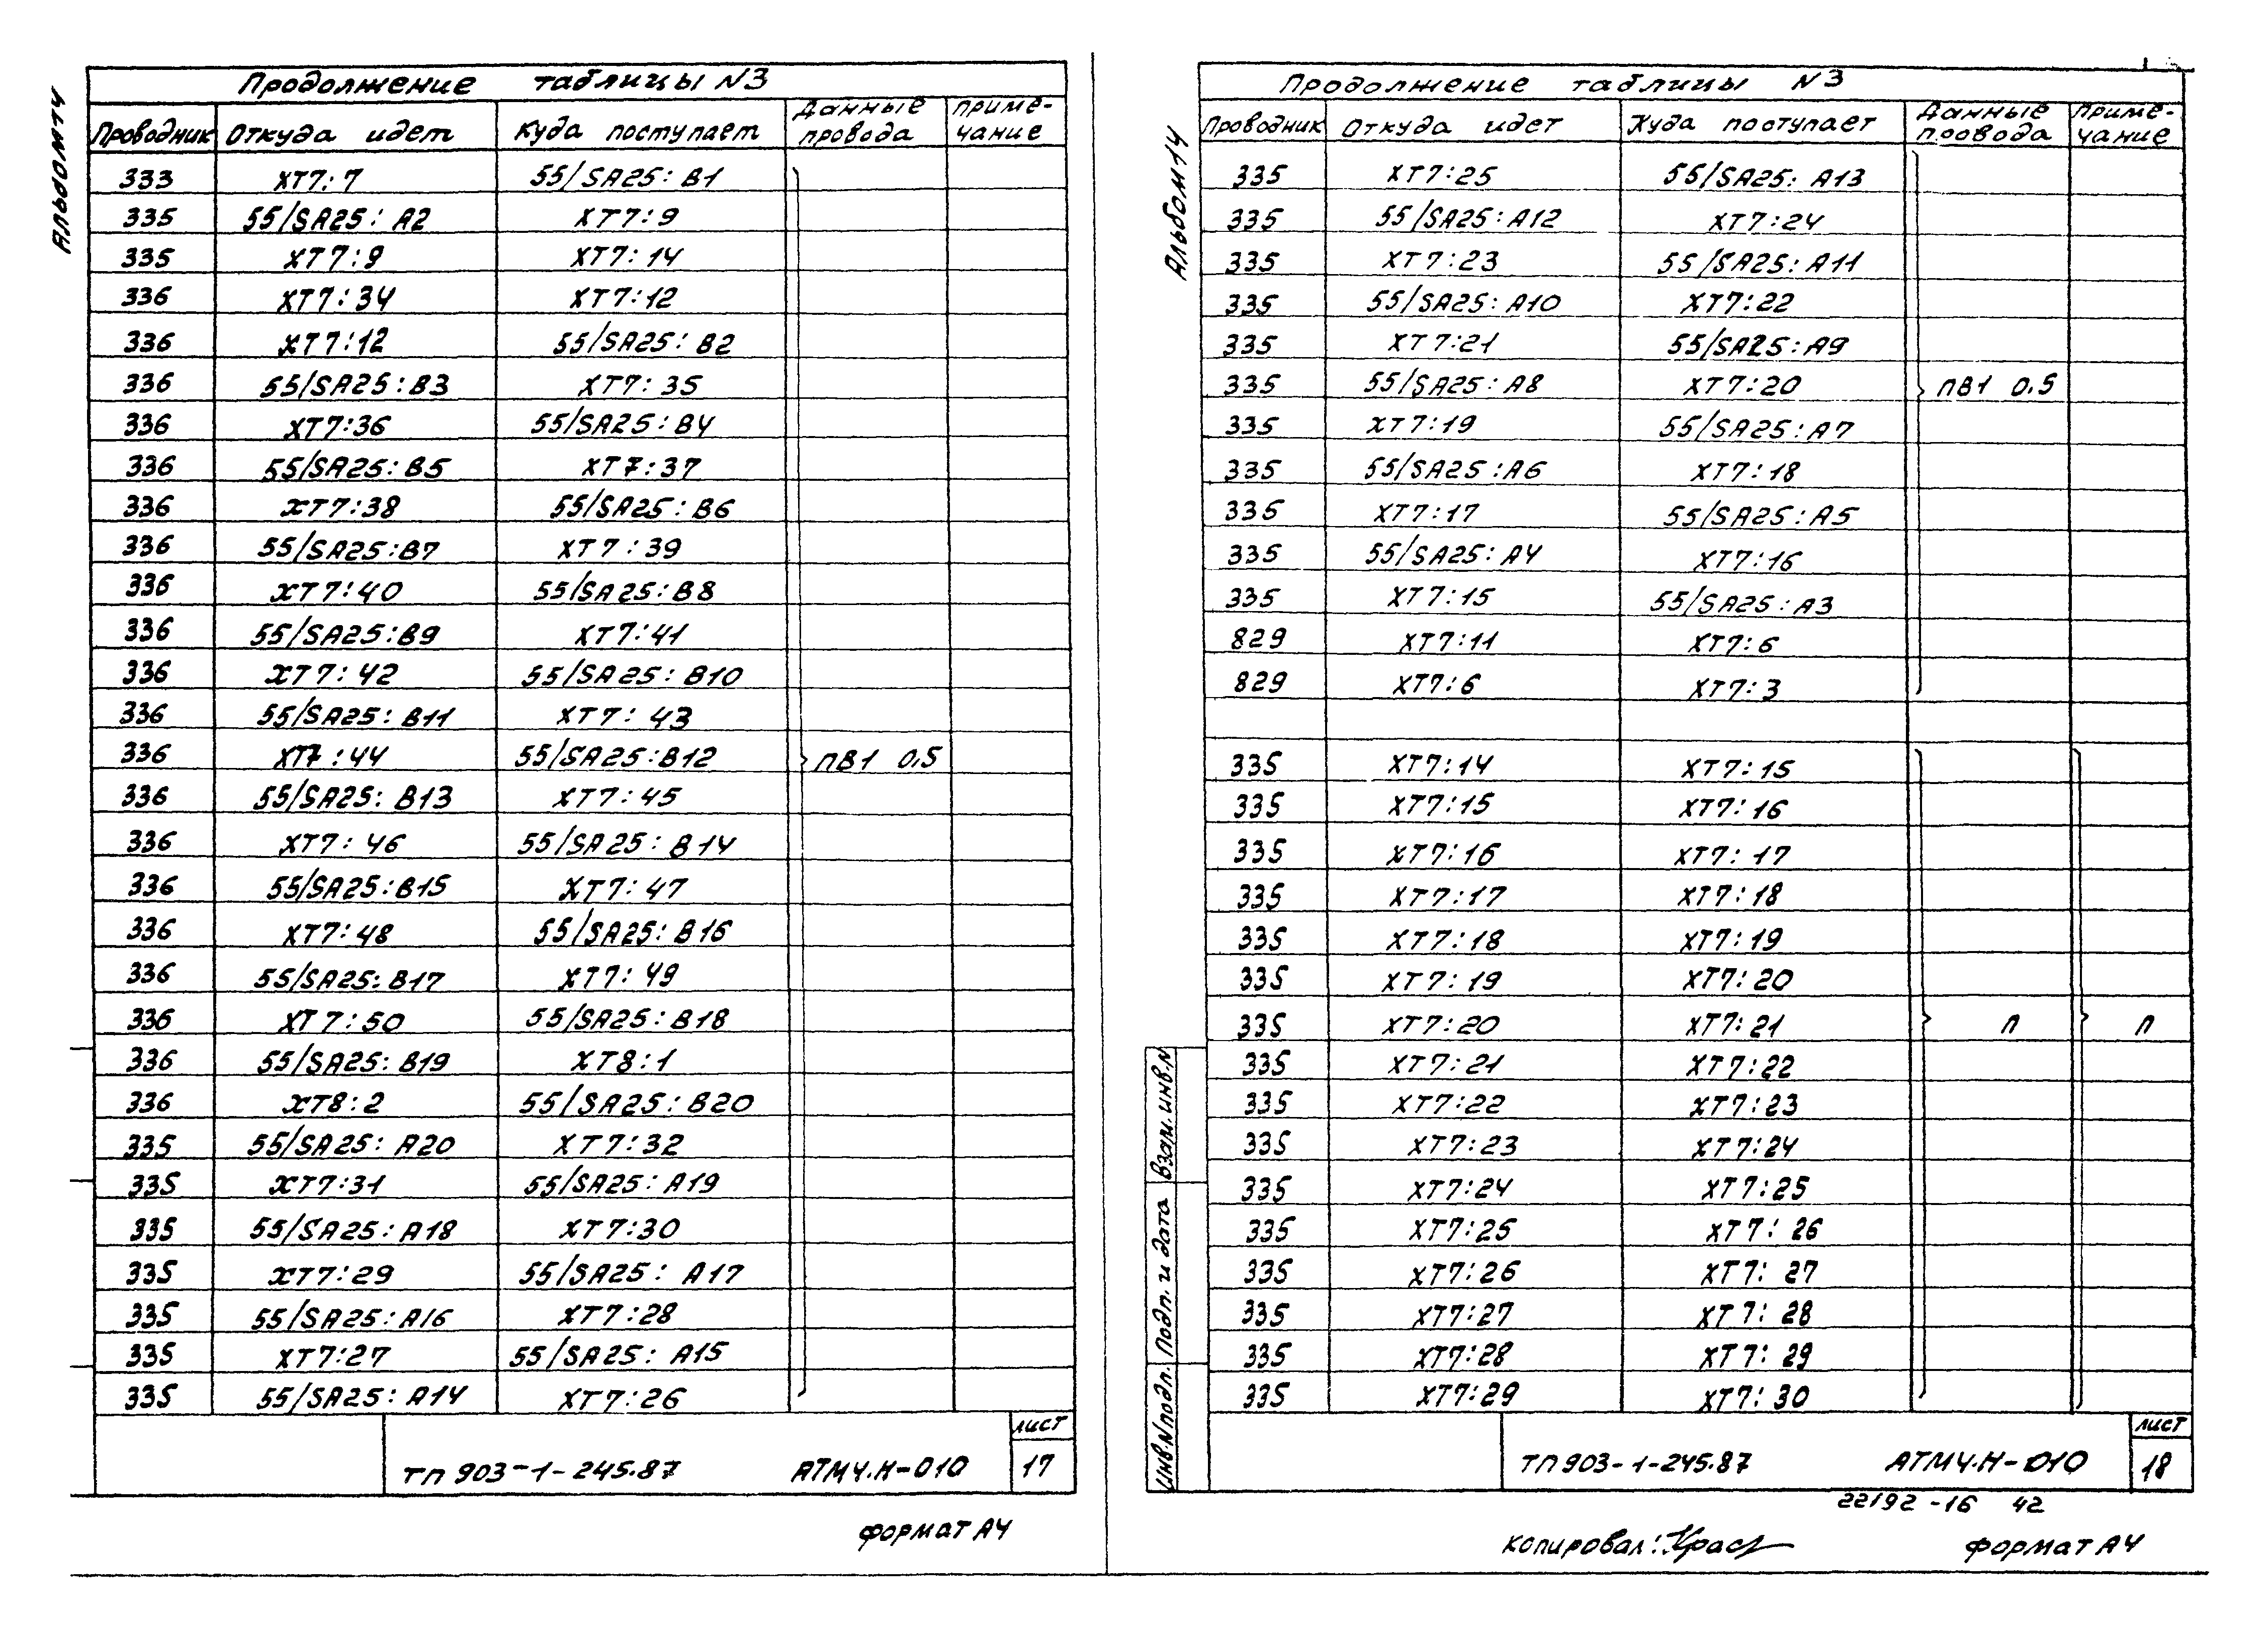 Альбом 14
Продолжение таблицы N3
Проводник Откуда идет Куда поступает Данные провода Приме-чание
333 XT7:7 55/SA25:B1
335 55/SA25:A2 XT7:9
335 XT7:9 XT7:14
336 XT7:34 XT7:12
336 XT7:12 55/SA25:B2
336 55/SA25:B3 XT7:35
336 XT7:36 55/SA25:B4
336 55/SA25:B5 XT7:37
336 XT7:38 55/SA25:B6
336 55/SA25:B7 XT7:39
336 XT7:40 55/SA25:B8
336 55/SA25:B9 XT7:41
336 XT7:42 55/SA25:B10
336 55/SA25:B11 XT7:43
336 XT7:44 55/SA25:B12 ПВ1 0,5
336 55/SA25:B13 XT7:45
336 XT7:46 55/SA25:B14
336 55/SA25:B15 XT7:47
336 XT7:48 55/SA25:B16
336 55/SA25:B17 XT7:49
336 XT7:50 55/SA25:B18
336 55/SA25:B19 XT8:1
336 XT8:2 55/SA25:B20
335 55/SA25:A20 XT7:32
335 XT7:31 55/SA25:A19
335 55/SA25:A18 XT7:30
335 XT7:29 55/SA25:A17
335 55/SA25:A16 XT7:28
335 XT7:27 55/SA25:A15
335 55/SA25:A14 XT7:26
ТП 903-1-245.87 АТМ4.Н-010 лист 17
формат А4
Альбом 14
Продолжение таблицы N3
Проводник Откуда идет Куда поступает Данные провода Приме-чание
335 XT7:25 55/SA25:A13
335 55/SA25:A12 XT7:24
335 XT7:23 55/SA25:A11
335 55/SA25:A10 XT7:22
335 XT7:21 55/SA25:A9
335 55/SA25:A8 XT7:20 ПВ1 0,5
335 XT7:19 55/SA25:A7
335 55/SA25:A6 XT7:18
335 XT7:17 55/SA25:A5
335 55/SA25:A4 XT7:16
335 XT7:15 55/SA25:A3
829 XT7:11 XT7:6
829 XT7:6 XT7:3
335 XT7:14 XT7:15
335 XT7:15 XT7:16
335 XT7:16 XT7:17
335 XT7:17 XT7:18
335 XT7:18 XT7:19
335 XT7:19 XT7:20
335 XT7:20 XT7:21 П П
335 XT7:21 XT7:22
335 XT7:22 XT7:23
335 XT7:23 XT7:24
335 XT7:24 XT7:25
335 XT7:25 XT7:26
335 XT7:26 XT7:27
335 XT7:27 XT7:28
335 XT7:28 XT7:29
335 XT7:29 XT7:30
Инв.N подл. Подп. и дата Взам. инв.N
ТП 903-1-245.87 АТМ4.Н-010 лист 18
22192-16 42
копировал: формат А4